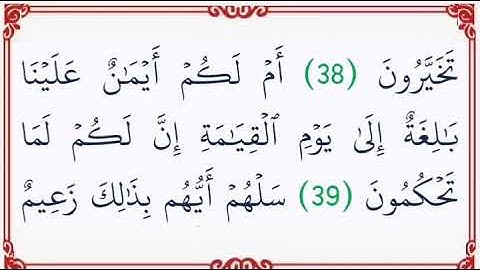 تَخَيَّرُونَ (38) أَمۡ لَكُمۡ أَيۡمَٰنٌ عَلَيۡنَا
بَٰلِغَةٌ إِلَىٰ يَوۡمِ ٱلۡقِيَٰمَةِ إِنَّ لَكُمۡ لَمَا
تَحۡكُمُونَ (39) سَلۡهُمۡ أَيُّهُم بِذَٰلِكَ زَعِيمٌ